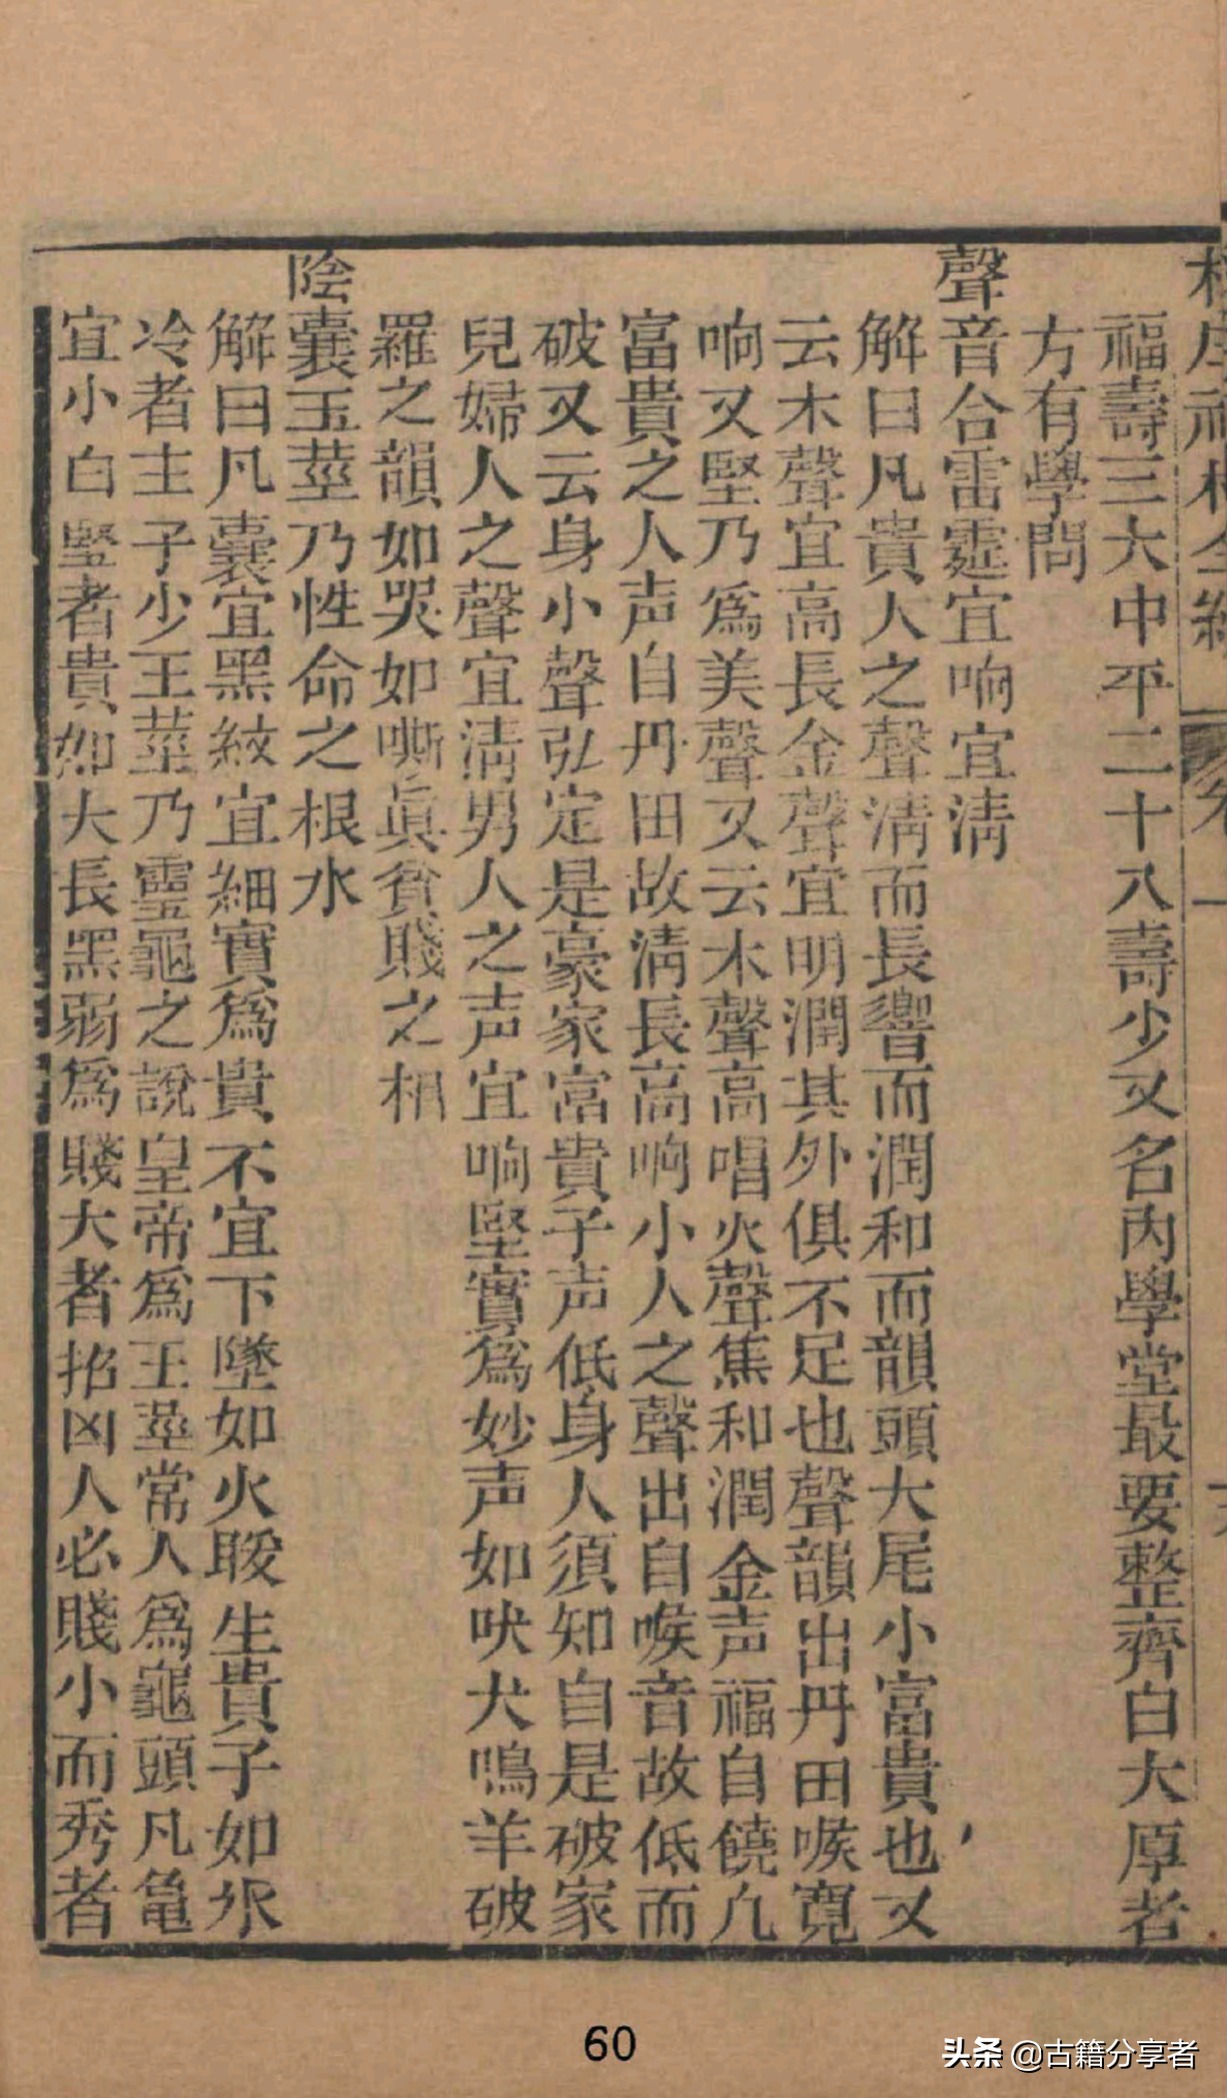 福壽三大中平二十八壽少又名內學堂最要整齊白大厚者
方有學問
聲音合雷霆宜响宜淸
解曰凡貴人之聲淸而長響而潤和而韻頭大尾小富貴也又
云木聲宜高長金聲宜明潤其外俱不足也聲韻出丹田喉寬
响又堅乃爲美聲又云木聲高唱火聲焦和潤金声福自饒凢
富貴之人声自丹田故淸長高响小人之聲出自喉音故低而
破又云身小聲弘定是豪家富貴子声低身人須知自是破家
兒婦人之聲宜淸男人之声宜响堅實爲妙声如吠犬鳴羊破
羅之韻如哭如嘶眞貧賤之相
陰囊玉莖乃性命之根水
解曰凡囊宜黑紋宜細實爲貴不宜下墜如火暖生貴子如氷
冷者主子少王莖乃靈龜之說皇帝爲王莖常人爲龜頭凡亀
宜小白堅者貴如大長黑弱爲賤大者招凶人必賤小而秀者
60
头条 @古籍分享者